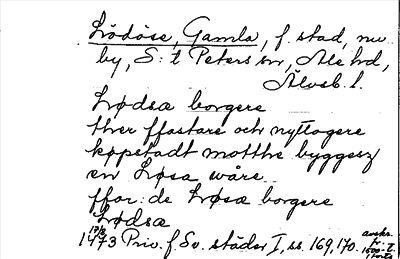 Lödöse, Gamla, f. stad, nu
by, S:t Peters sn, Ale hd,
Älvsb. l.
Lødsæ borgere
ther ffastare och nyttogere
køpstadt motthe byggesz
en Løsa wåre
ffor: de Løsæ borgere
Lødsæ
17/8
1473 Priv. f. Sv. städer I, ss. 169, 170.
avskr.
fr.
1500-t.